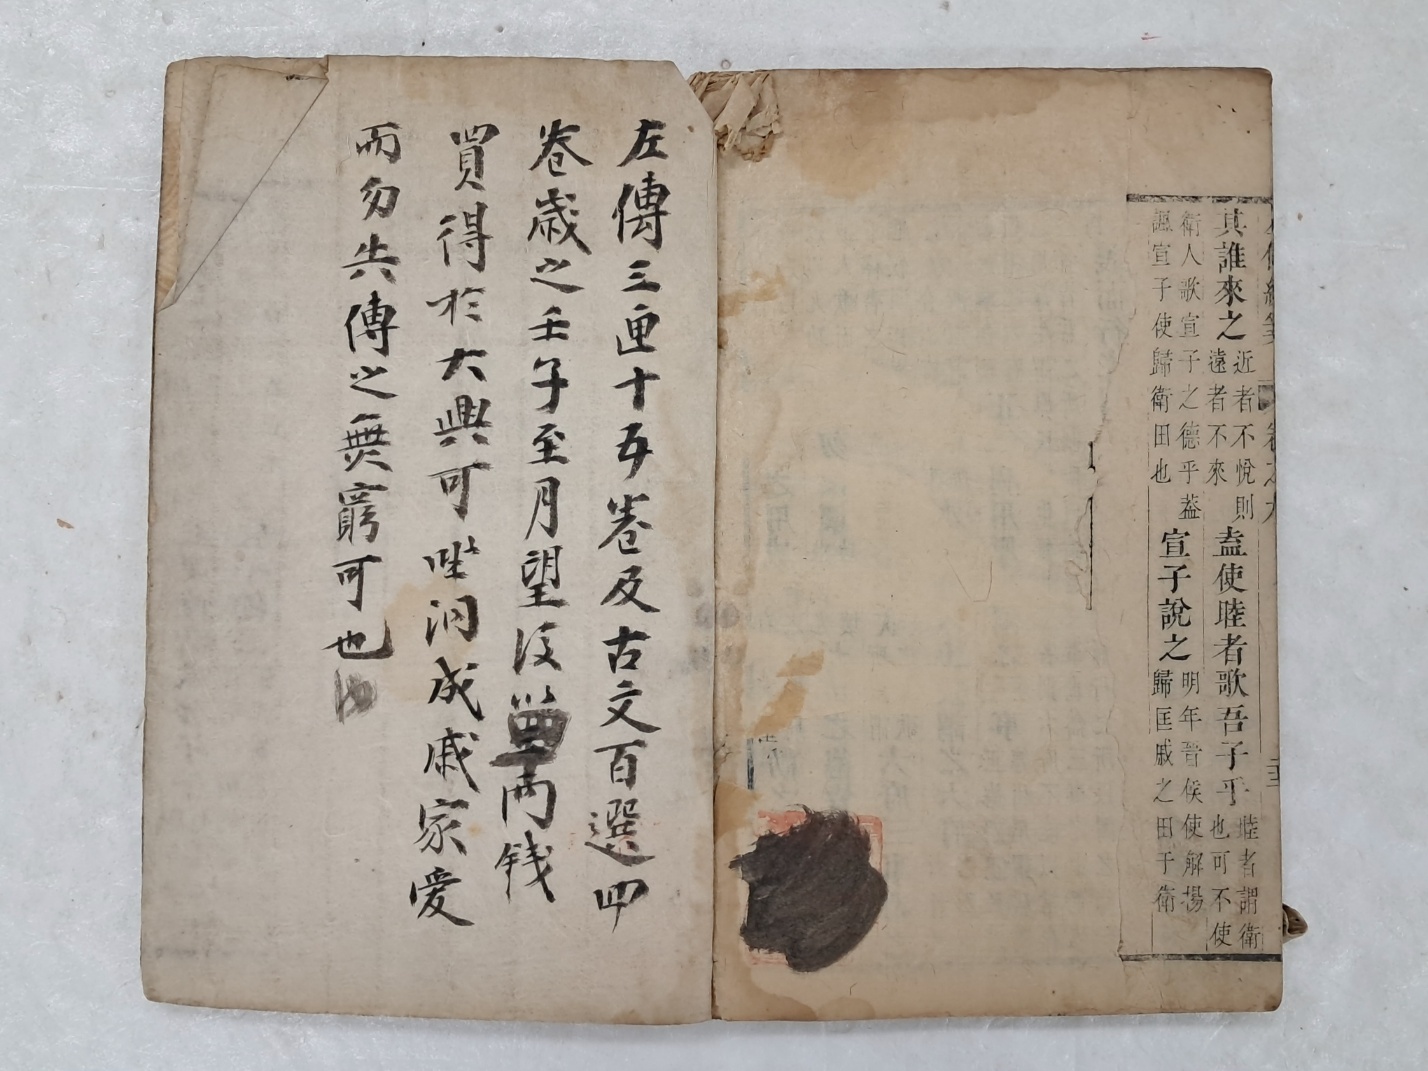 其誰來之近者不悅則遠者不來盍使睦者歌吾子乎睦者謂衛也可不使
衛人歌宣子之德乎葢諷宣子使歸衛田也宣子說之明年晉侯使解揚歸匡戚之田于衛
左傳三匣十五卷及古文百選四
卷歲之壬子至月望後 兩錢
買得於大興可 洞成戚家愛
而勿失傳之無窮可也